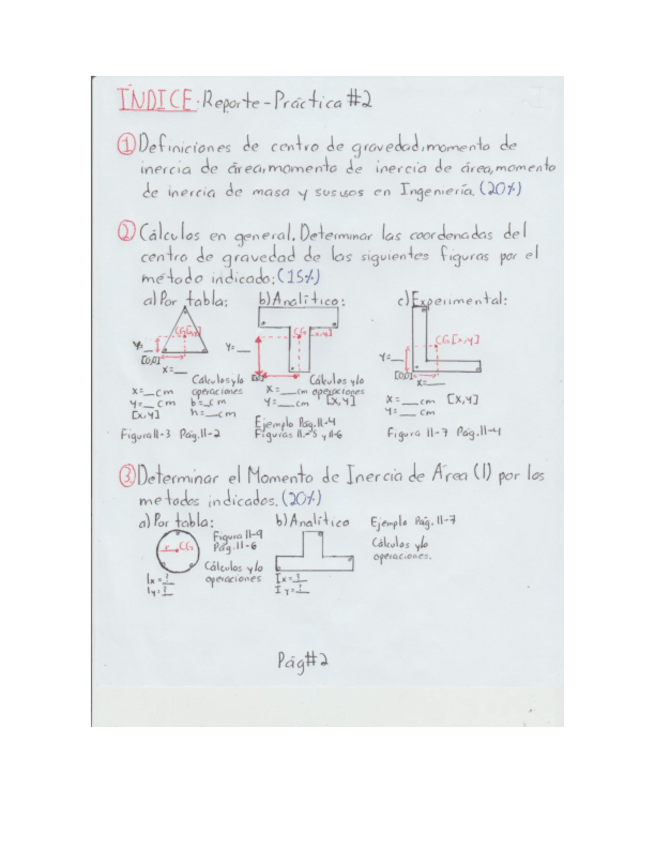 ÍNDICE: Reporte-Práctica #2
① Definiciones de centro de gravedad, momento de
inercia de área, momento de inercia de área, momento
de inercia de masa y sus usos en Ingeniería. (20%)
② Cálculos en general. Determinar las coordenadas del
centro de gravedad de las siguientes figuras por el
método indicado: (15%)
a) Por tabla:
CG[x,y]
Y=__
[0,0]
X=__
X=__cm
Y=__cm
[X,Y]
Cálculos y/o
operaciones
b=__cm
h=__cm
Figura 11-3 Pág. 11-2
b) Analítico:
CG [x,y]
Y=__
[0,0]
X=__cm
Y=__cm
Cálculos y/o
operaciones
[X,Y]
Ejemplo Pág. 11-4
Figuras 11-5 y 11-6
c) Experimental:
CG[x,y]
Y=__
[0,0]
X=__
X=__cm [X,Y]
Y=__cm
Figura 11-7 Pág. 11-4
③ Determinar el Momento de Inercia de Área (I) por los
metodos indicados. (20%)
a) Por tabla:
r CG
Figura 11-9
Pág. 11-6
Cálculos y/o
operaciones
Ix=?
Iy=?
b) Analítico
Ix=?
Iy=?
Ejemplo Pág. 11-7
Cálculos y/o
operaciones.
Pág#2